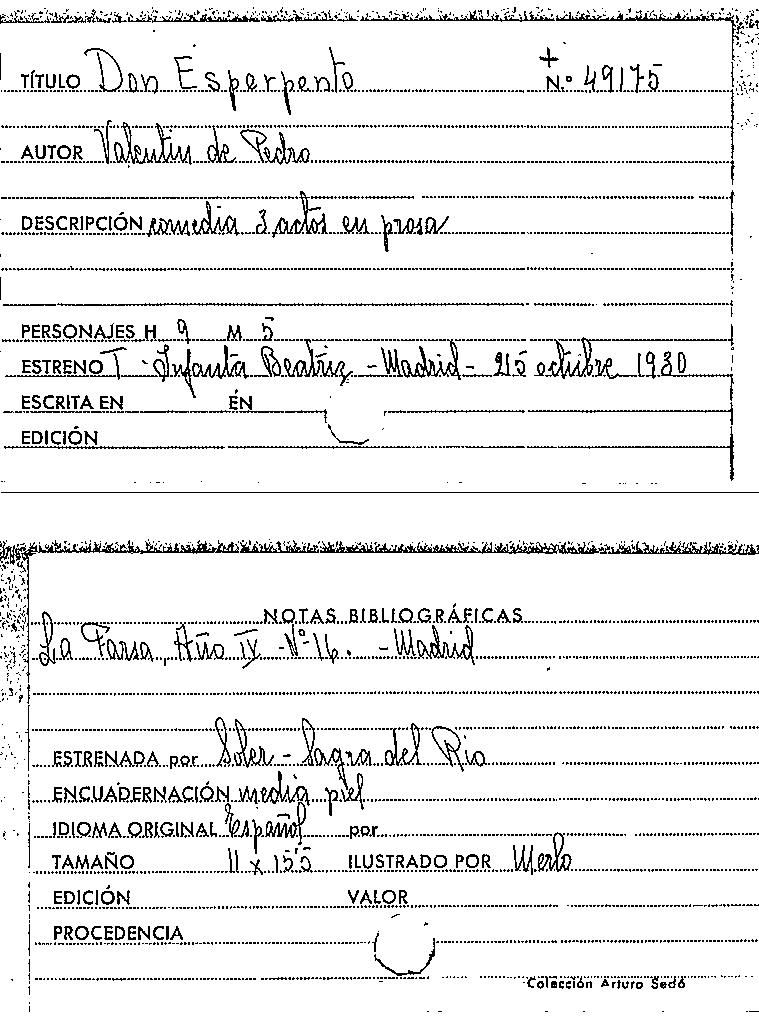 +
TÍTULO Don Esperpento N.º 49175
AUTOR Valentin de Pedro
DESCRIPCIÓN comedia 3 actos en prosa
PERSONAJES H 9 M 5
ESTRENO T. Infanta Beatriz - Madrid - octubre 1930
ESCRITA EN ÉN
EDICIÓN
NOTAS BIBLIOGRÁFICAS
La Farsa, Año IV - Nº 16. - Madrid
ESTRENADA por Soler - Sagra del Rio
ENCUADERNACIÓN media piel
IDIOMA ORIGINAL Español por
TAMAÑO 11 x 15'5 ILUSTRADO POR Merlo
EDICIÓN VALOR
PROCEDENCIA
Colección Arturo Sedó